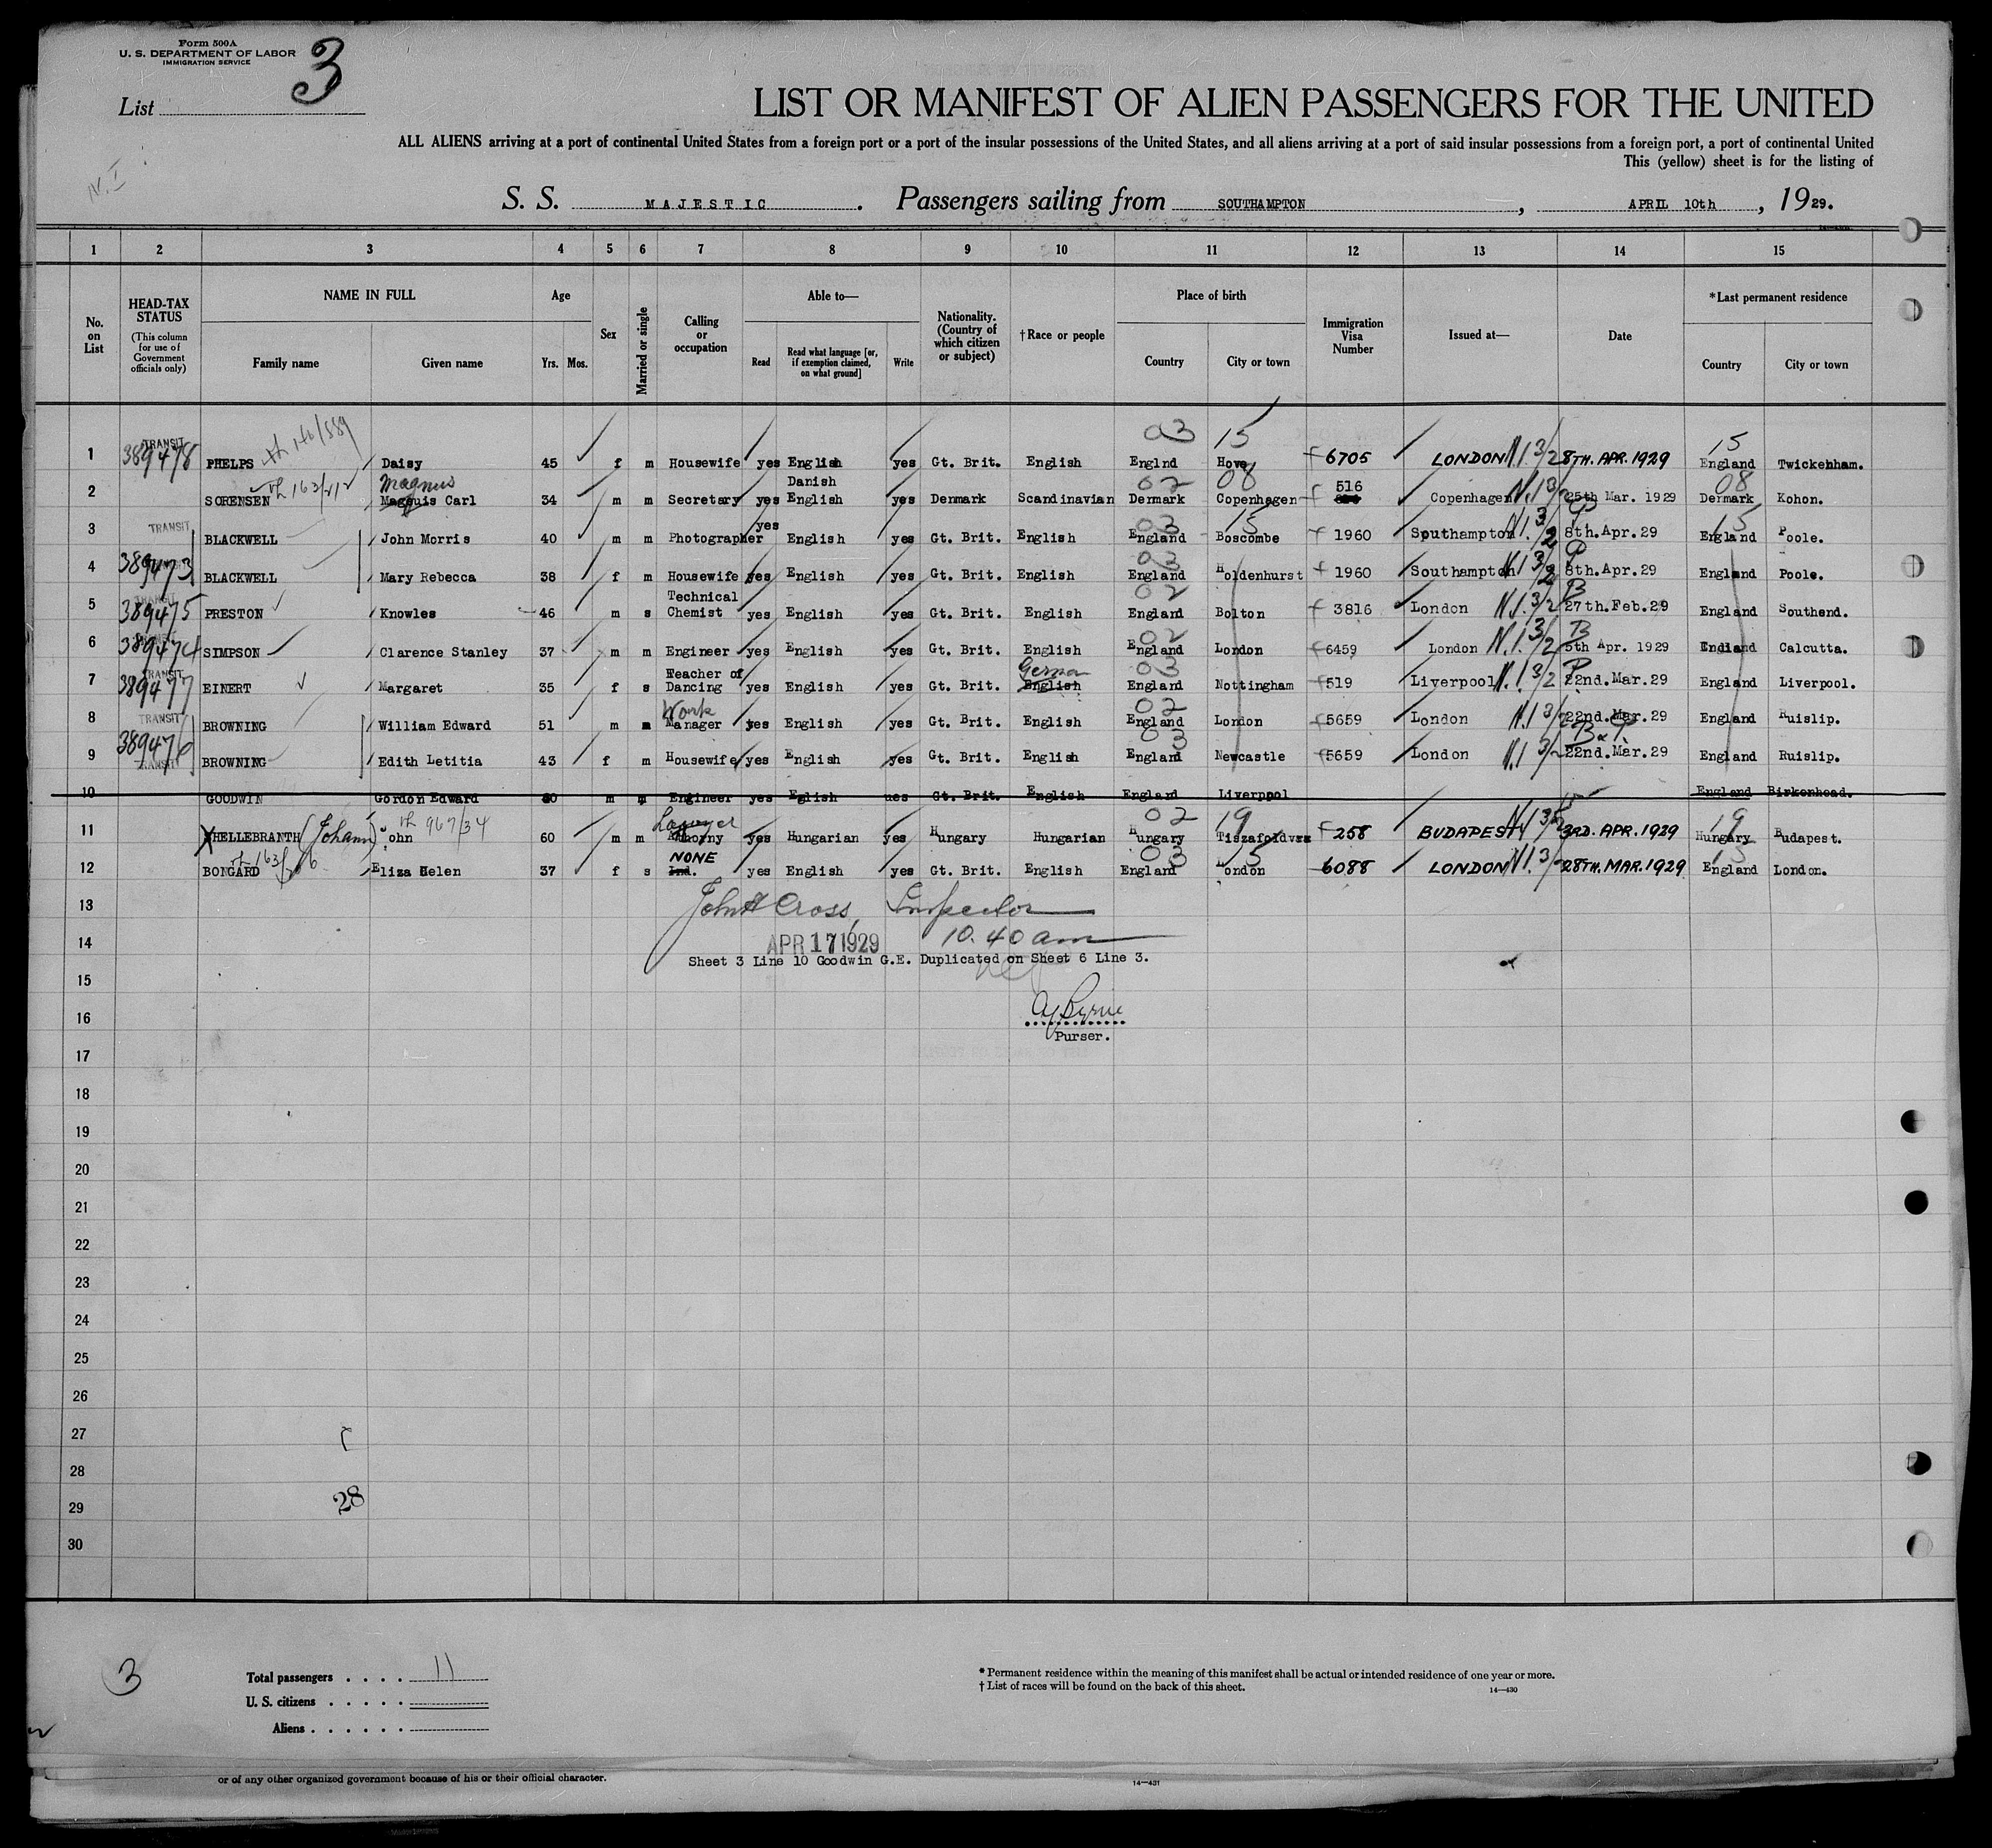 Form 500A
U. S. DEPARTMENT OF LABOR
IMMIGRATION SERVICE
List 3
LIST OR MANIFEST OF ALIEN PASSENGERS FOR THE UNITED
ALL ALIENS arriving at a port of continental United States from a foreign port or a port of the insular possessions of the United States, and all aliens arriving at a port of said insular possessions from a foreign port, a port of continental United
This (yellow) sheet is for the listing of
S. S. MAJESTIC. Passengers sailing from SOUTHAMPTON, APRIL 10th, 1929.
1 2 3 4 5 6 7 8 9 10 11 12 13 14 15
No. on List
HEAD-TAX STATUS (This column for use of Government officials only)
NAME IN FULL Family name Given name
Age Yrs. Mos.
Sex
Married or single
Calling or occupation
Able to— Read Read what language [or, if exemption claimed, on what ground] Write
Nationality. (Country of which citizen or subject)
†Race or people
Place of birth Country City or town
Immigration Visa Number
Issued at—
Date
*Last permanent residence Country City or town
03 15 15
1 TRANSIT 389478 PHELPS Daisy 45 f m Housewife yes English yes Gt. Brit. English Englnd Hove 6705 LONDON N.I. 3/2 8TH. APR. 1929 England Twickehham.
163/212 Magnus Danish 02 08 516 08
2 SORENSEN Magnuis Carl 34 m m Secretary yes English yes Denmark Scandinavian Denmark Copenhagen Copenhagen N.I. 3/2 25th Mar. 1929 Denmark Kohon.
TRANSIT yes 03 15 15
3 BLACKWELL John Morris 40 m m Photographer English yes Gt. Brit. English England Boscombe 1960 Southampton N.I. 3/2 8th. Apr. 29 England Poole.
03
4 389473 BLACKWELL Mary Rebecca 38 f m Housewife yes English yes Gt. Brit. English England Holdenhurst 1960 Southampton N.I. 3/2 8th. Apr. 29 England Poole.
Technical 02
5 389475 PRESTON Knowles 46 m s Chemist yes English yes Gt. Brit. English England Bolton 3816 London N.I. 3/2 27th. Feb. 29 England Southend.
02
6 389474 SIMPSON Clarence Stanley 37 m m Engineer yes English yes Gt. Brit. English England London 6459 London N.I. 3/2 5th Apr. 1929 Calcutta.
TRANSIT Teacher of German 03
7 389477 EINERT Margaret 35 f s Dancing yes English yes Gt. Brit. English England Nottingham 519 Liverpool N.I. 3/2 22nd. Mar. 29 England Liverpool.
TRANSIT Work 02
8 BROWNING William Edward 51 m m Manager yes English yes Gt. Brit. English England London 5659 London N.I. 3/2 22nd. Mar. 29 England Ruislip.
03
9 389476 TRANSIT BROWNING Edith Letitia 43 f m Housewife yes English yes Gt. Brit. English England Newcastle 5659 London N.I. 3/2 22nd. Mar. 29 England Ruislip.
10 GOODWIN Gordon Edward m m Engineer yes Eglish ues Gt. Brit. English England Liverppol England Birkenhead.
967/34 Lawyer 02 19 19
11 HELLEBRANTH (Johann) John 60 m m yes Hungarian yes Hungary Hungarian Hungary 258 BUDAPEST N.I. 3/2 3RD. APR. 1929 Hungary Budapest.
NONE 03 15 15
12 BONGARD Eliza Helen 37 f s Ind. yes English yes Gt. Brit. English England London 6088 LONDON N.I. 3/2 28TH. MAR. 1929 England London.
13 John H Cross, Inspector
14 APR 17 1929 10.40 am
Sheet 3 Line 10 Goodwin G.E. Duplicated on Sheet 6 Line 3.
15
16 Byrne
Purser.
17
18
19
20
21
22
23
24
25
26
27
28
28
29
30
3
Total passengers . . . . 11
U. S. citizens . . . . .
Aliens . . . . . .
* Permanent residence within the meaning of this manifest shall be actual or intended residence of one year or more.
† List of races will be found on the back of this sheet.
14—430
or of any other organized government because of his or their official character.
14—431